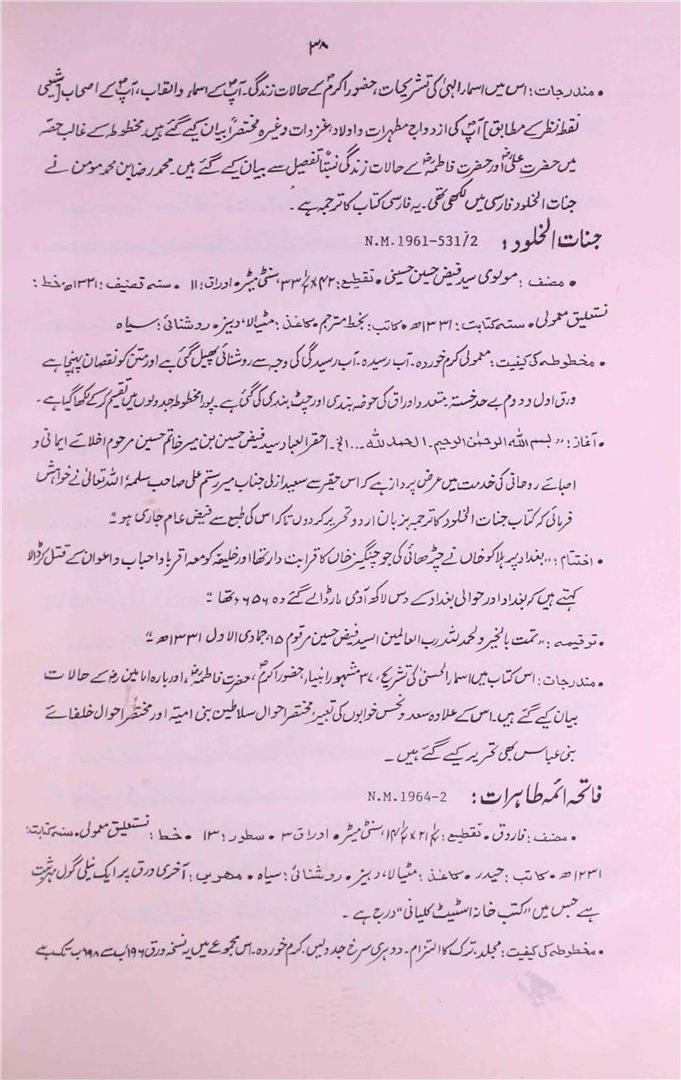 ۳۸
• مندرجات: اس میں اسمار الہیٰ کی تشریحات، حضور اکرمؐ کے حالات زندگی۔ آپؐ کے اسماء والقاب، آپؐ کے اصحاب [شیعی
نقطۂ نظر کے مطابق] آپؐ کی ازدواج مطہرات و اولاد، غزوات وغیرہ مختصراً بیان کیے گئے ہیں۔ مخطوطہ کے غالب حصّہ
میں حضرت علیؓ اور حضرت فاطمہؓ کے حالات زندگی نسبتاً تفصیل سے بیان کیے گئے ہیں۔ محمد رضا بن محمد مومن نے
جنات الخلود فارسی میں لکھی تھی۔ یہ فارسی کتاب کا ترجمہ ہے۔
جنات الخلود: N.M.1961-531/2
• مصنف: مولوی سید فیض حسین حسینی • تقطیع: ۴۲×۳۳٫ سنٹی میٹر • اوراق: ۱۱ • سنہ تصنیف: ۱۳۳۱ھ • خط:
نستعلیق معمولی • سنہ کتابت: ۱۳۳۱ھ • کاتب: بخط مترجم • کاغذ: مٹیالا، دبیز • روشنائی: سیاہ
• مخطوطہ کی کیفیت: معمولی کرم خوردہ۔ آب رسیدہ۔ آب رسیدگی کی وجہ سے روشنائی پھیل گئی ہے اور متن کو نقصان پہنچا ہے
ورق اول و دوم بے حد خستہ۔ متعدد اوراق کی حوضہ بندی اور چٹ بندی کی گئی ہے۔ پورا مخطوطہ جدولوں میں تقسیم کر کے لکھا گیا ہے۔
• آغاز: "بسم اللہ الرحمٰن الرحیم۔ الحمد للہ ... الخ۔ احقر العباد سید فیض حسین بن میر خاتم حسین مرحوم اخلائے ایمانی و
احبائے روحانی کی خدمت میں عرض پرداز ہے کہ اس حقیر سے سعید ازلی جناب میر رستم علی صاحب سلمہٗ اللہ تعالیٰ نے خواہش
فرمائی کہ کتاب جنات الخلود کا ترجمہ بزبان اردو تحریر کر دوں تاکہ اس کی طبع سے فیض عام جاری ہو۔"
• اختتام: "بغداد پر ہلاکو خاں نے چڑھائی کی جو چنگیز خاں کا قرابت دار تھا اور خلیفہ کو معہ اقربا و احباب و اعوان کے قتل کر ڈالا
کہتے ہیں کہ بغداد اور حوالی بغداد کے دس لاکھ آدمی مار ڈالے گئے وہ ۶۵۶ تھا۔"
• ترقیمہ: "تمت بالخیر والحمد للہ رب العالمین السید فیض حسین مرقوم ۱۵ جمادی الاول ۱۳۳۱ھ۔"
• مندرجات: اس کتاب میں اسماء الحسنیٰ کی تشریح، ۳۷ مشہور انبیاء، حضور اکرمؐ، حضرت فاطمہؓ، اور بارہ امامینؓ کے حالات
بیان کیے گئے ہیں۔ اس کے علاوہ سعد و نحس خوابوں کی تعبیر مختصر احوال سلاطین بنی امیّہ اور مختصر احوال خلفائے
بنی عباس بھی تحریر کیے گئے ہیں۔
فاتحہ ائمہ طاہرات: N.M.1964-2
• مصنف: فاروق • تقطیع: ۲۱×۱۴ سنٹی میٹر • اوراق ۳ • سطور: ۱۳ • خط: نستعلیق معمولی • سنہ کتابت:
۱۲۳۱ھ • کاتب: حیدر • کاغذ: مٹیالا، دبیز • روشنائی: سیاہ • مہریں: آخری ورق پر ایک نیلی گول مہر ثبت
ہے جس میں "کتب خانہ اسٹیٹ کلیانی" درج ہے۔
• مخطوطہ کی کیفیت: مجلد، ترک کا التزام۔ دوہری سرخ جدولیں۔ کرم خوردہ۔ اس مجموعے میں یہ نسخہ ورق ۱۹۶ب سے ۱۹۸ب تک ہے